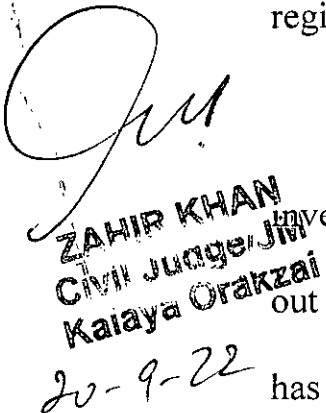 regi
ZAHIR KHAN
Civil Judge/JM
Kalaya Orakzai
out
20-9-22
has